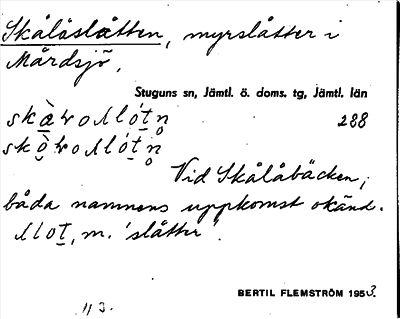 Skålåslåtten, myrslåtter i
Mårdsjö,
Stuguns sn, Jämtl. ö. doms. tg, Jämtl. län
288
Vid Skålåbäcken;
båda namnens uppkomst okänd.
m. 'slåtter'.
BERTIL FLEMSTRÖM 1953.
113.